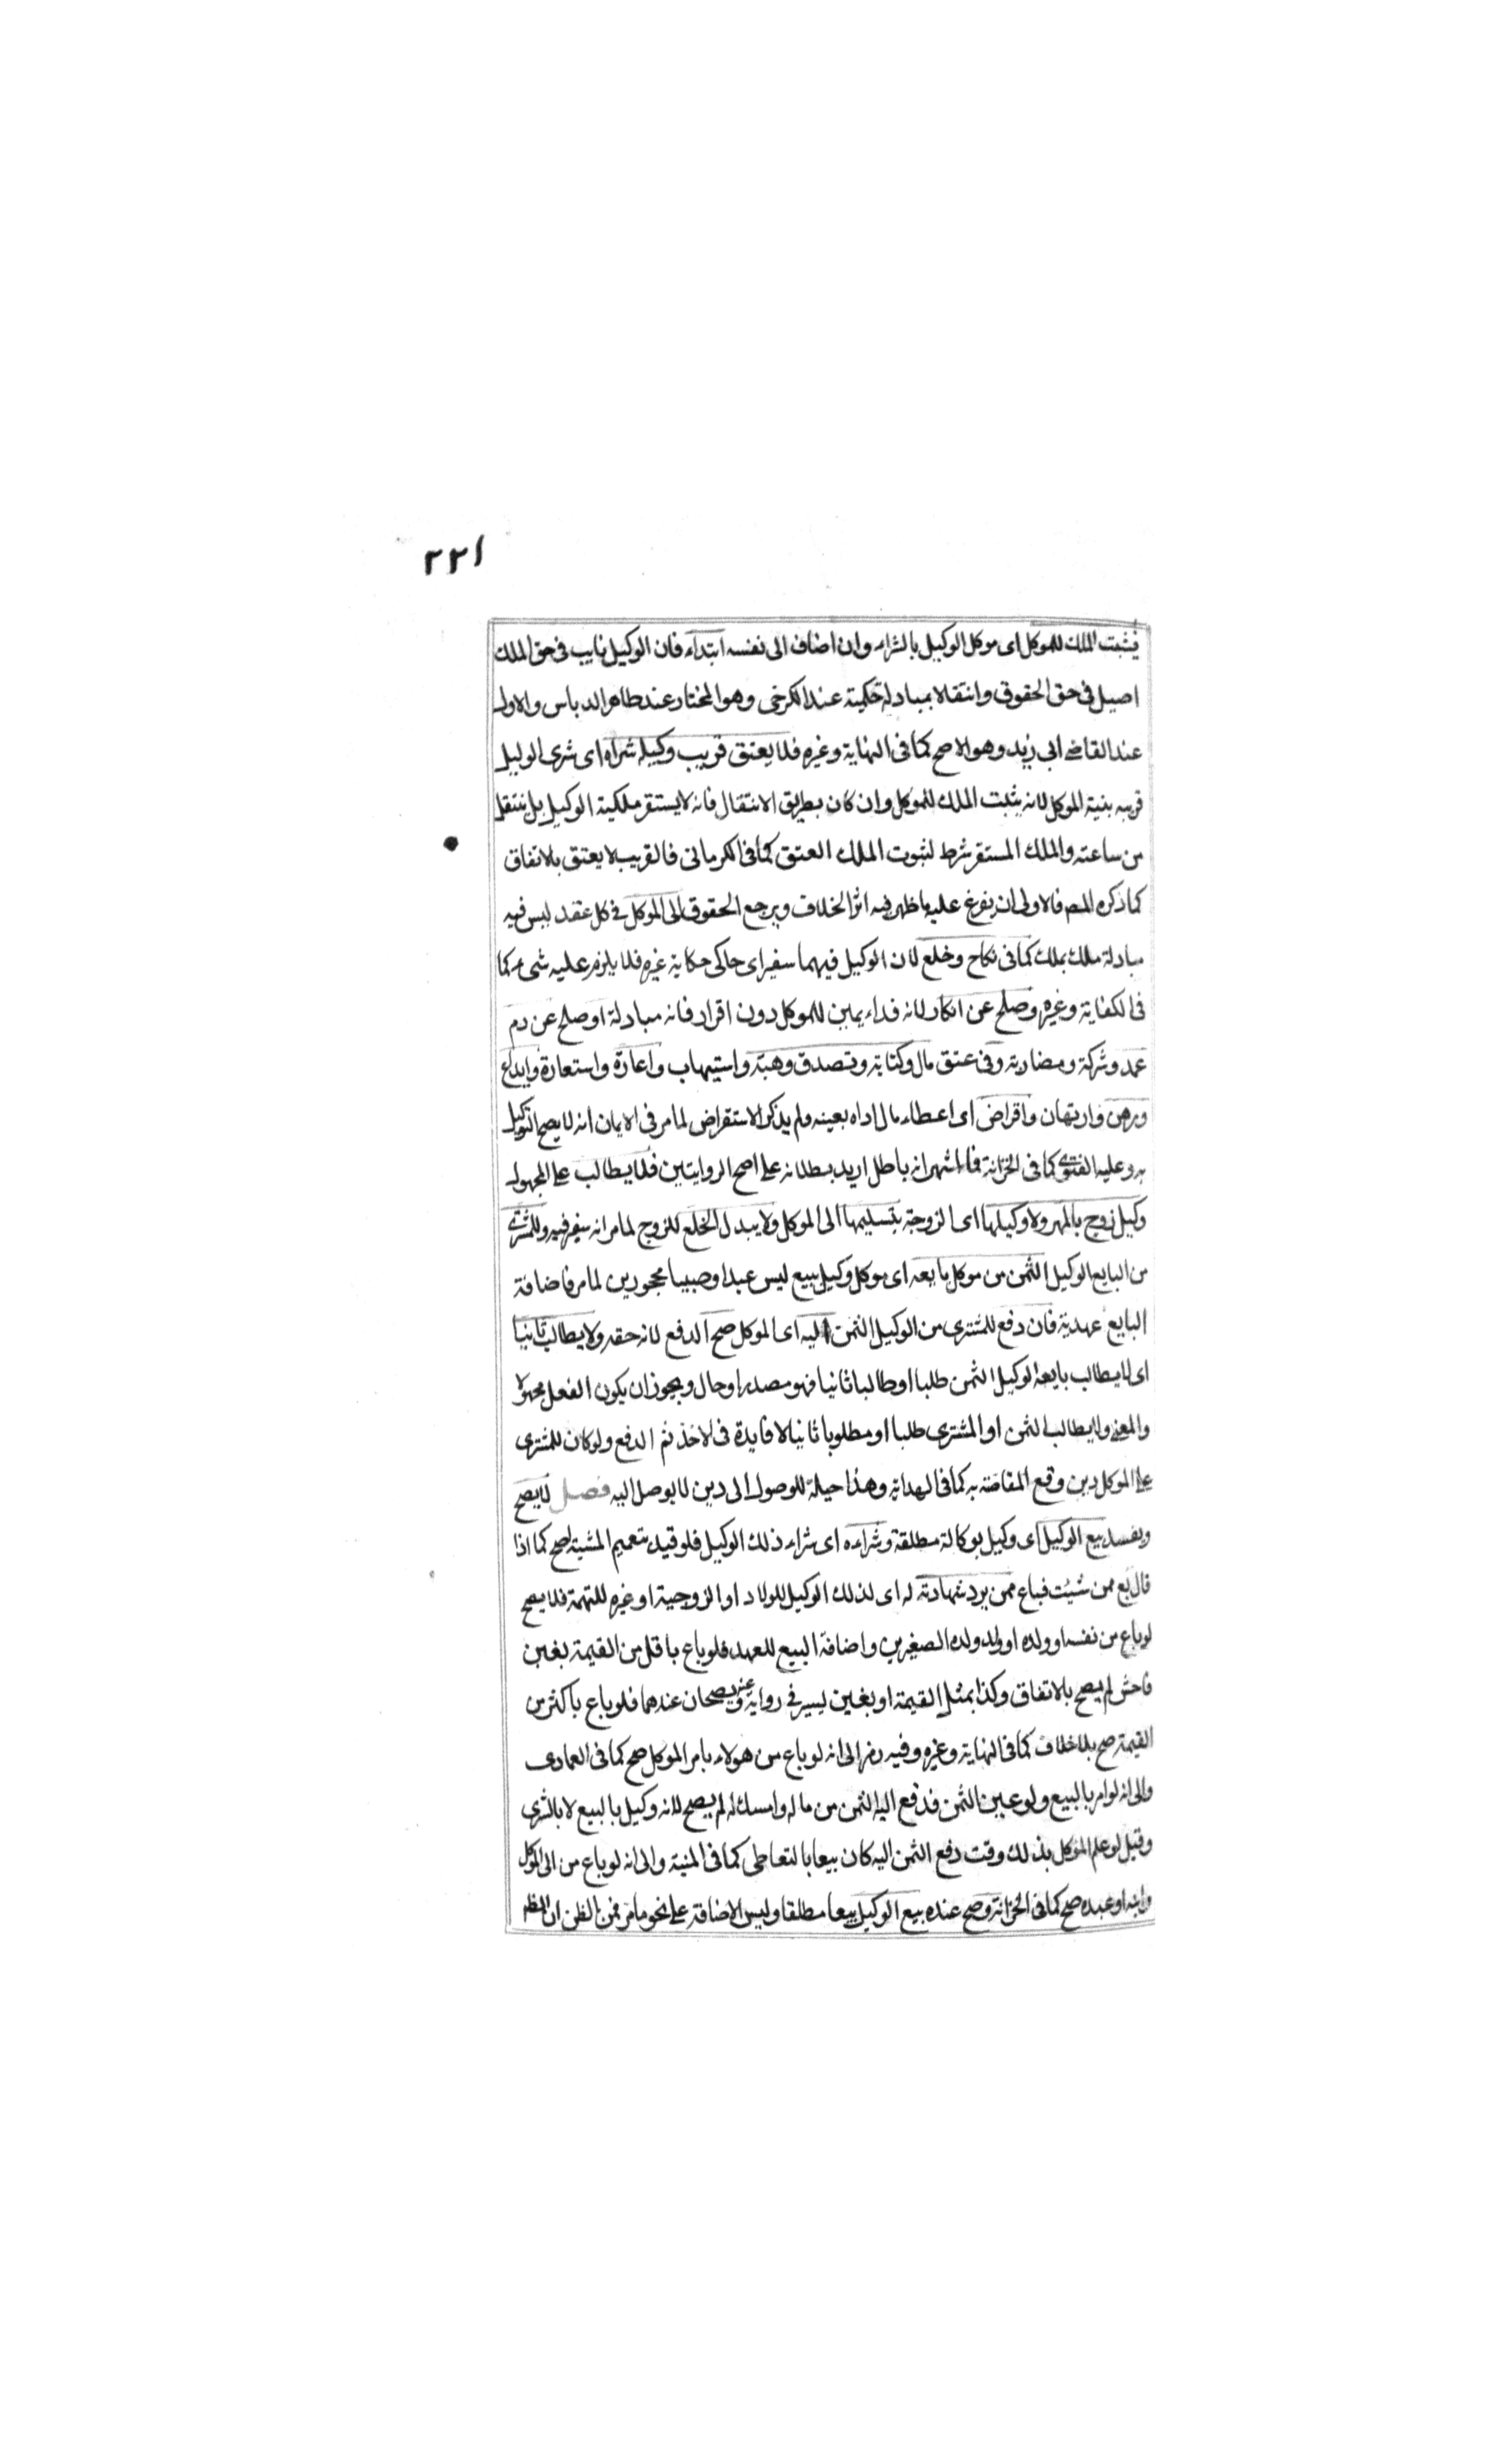 ٢٢١
فيثبت الملك للموكل اى موكل الوكيل بالشراء وان اضاف الى نفسه ابتداء فان الوكيل نايب فى حق الملك
اصيل فى حق الحقوق وانتقالا بمبادلة حكمية عند الكرخى وهو المختار عند طاهر الدباس والاول
عند القاضى ابى زيد وهو الاصح كما فى النهاية وغيره فلا يعتق قريب وكيله شراه اى شرى الوكيل
قريبه بنية الموكل لانه يثبت الملك للموكل وان كان بطريق الانتقال فانه لا يستقر ملكية الوكيل بل ينتقل
من ساعته والملك المستقر شرط لثبوت الملك العتق كما فى الكرمانى فالقريب لا يعتق بلاتفاق
كما ذكره المص فالاولى ان يفرغ عليه ما ظهر فيه اثر الخلاف ويرجع الحقوق الى الموكل فى كل عقد ليس فيه
مبادلة ملك بملك كما فى نكاح وخلع لان الوكيل فيهما سفير اى حاكى حكاية غيره فلا يلزم عليه شىء كما
فى الكفاية وغيره وصلح عن انكار لانه فداء يمين للموكل دون اقرار فانه مبادلة او صلح عن دم
عمد وشركة ومضاربة وفى عتق مال وكتابة وتصدق وهبة واستيهاب واعارة واستعارة وايداع
ورهن وارتهان واقراض اى اعطاء مال اداه بعينه ولم يذكر الاستقراض لما مر فى الايمان انه لا يصح التوكيل
به وعليه الفتوى كما فى الخزانة فما اشتهر انه باطل اريد بطلانه على اصح الروايتين فلا يطالب على المجهول
وكيل زوج بالمهر ولا وكيلها اى الزوجة بتسليمها الى الموكل ولا ببدل الخلع للزوج لما مر انه سفير فيه وللمشترى
من البايع الوكيل الثمن من موكل بايعه اى موكل وكيل ببيع ليس عبدا وصبيا محجورين لما مر فاضافة
البايع عهدية فان دفع للمشترى من الوكيل الثمن اليه اى الموكل صح الدفع لانه حقه ولا يطالب ثانيا
اى لا يطالب بايعه الوكيل الثمن طلبا او طالبا ثانيا فهو مصدر او حال ويجوز ان يكون الفعل مجهولا
والمعنى ولا يطالب الثمن او المشترى طلبا او مطلوبا ثانيا لا فايدة فى الاخذ ثم الدفع ولو كان للمشترى
على الموكل دين وقع المقاصة به كما فى الهداية وهذا حيلة للوصول الى دين لا يوصل اليه فصل لا يصح
ويفسد بيع الوكيل اى وكيل بوكالة مطلقة وشراءه اى شراء ذلك الوكيل فلو قيد بتعميم المشية لصح كما اذا
قال بع ممن شئت فباع ممن يرد شهادته له اى لذلك الوكيل للولاد او الزوجية او غيره للتهمة فلا يصح
لو باع من نفسه او ولده او ولد ولده الصغيرين واضافة البيع للعهد فلو باع باقل من القيمة بغبن
فاحش لم يصح بلاتفاق وكذا بمثل القيمة او بغبن يسير فى رواية عنه ويصحان عندهما فلو باع باكثر من
القيمة صح بلا خلاف كما فى النهاية وغيره وفيه رمز الى انه لو باع من هولاء بامر الموكل صح كما فى العمادى
والى انه لو امر بالبيع ولو عين الثمن فدفع اليه الثمن من ماله وامسك له لم يصح لانه وكيل بالبيع لا بالشرى
وقيل لو علم الموكل بذلك وقت دفع الثمن اليه كان بيعا بالتعاطى كما فى المنية والى انه لو باع من الى الموكل
وابنه او عبده صح كما فى الخزانة وصح عنده بيع الوكيل بيعا مطلقا وليس الاضافة على نحو ما مر فمن الظن ان النظم